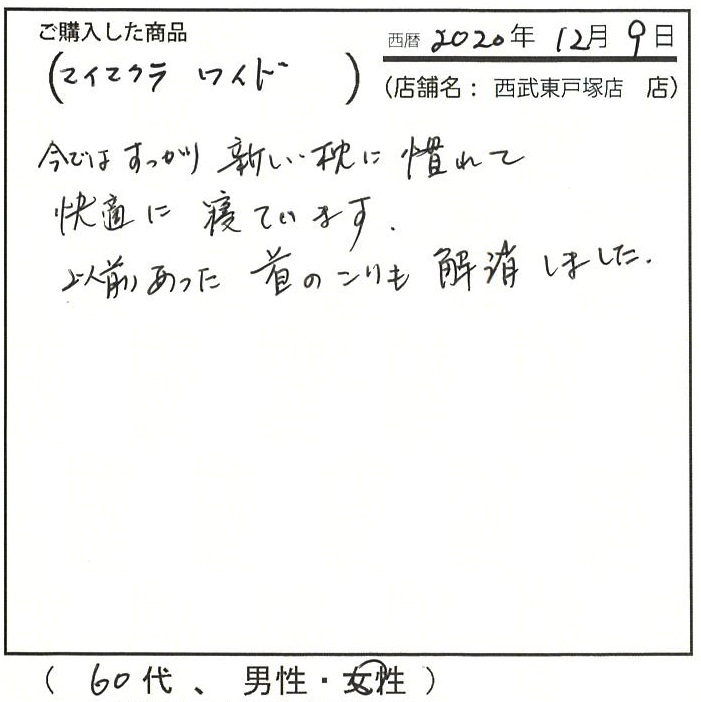 ご購入した商品
西暦 2020年 12月 9日
(マイマクラ ワイド )
(店舗名： 西武東戸塚店 店)
今ではすっかり 新しい枕に 慣れて
快適に 寝ています.
以前あった 首のこりも 解消しました.
( 60代、 男性・女性 )